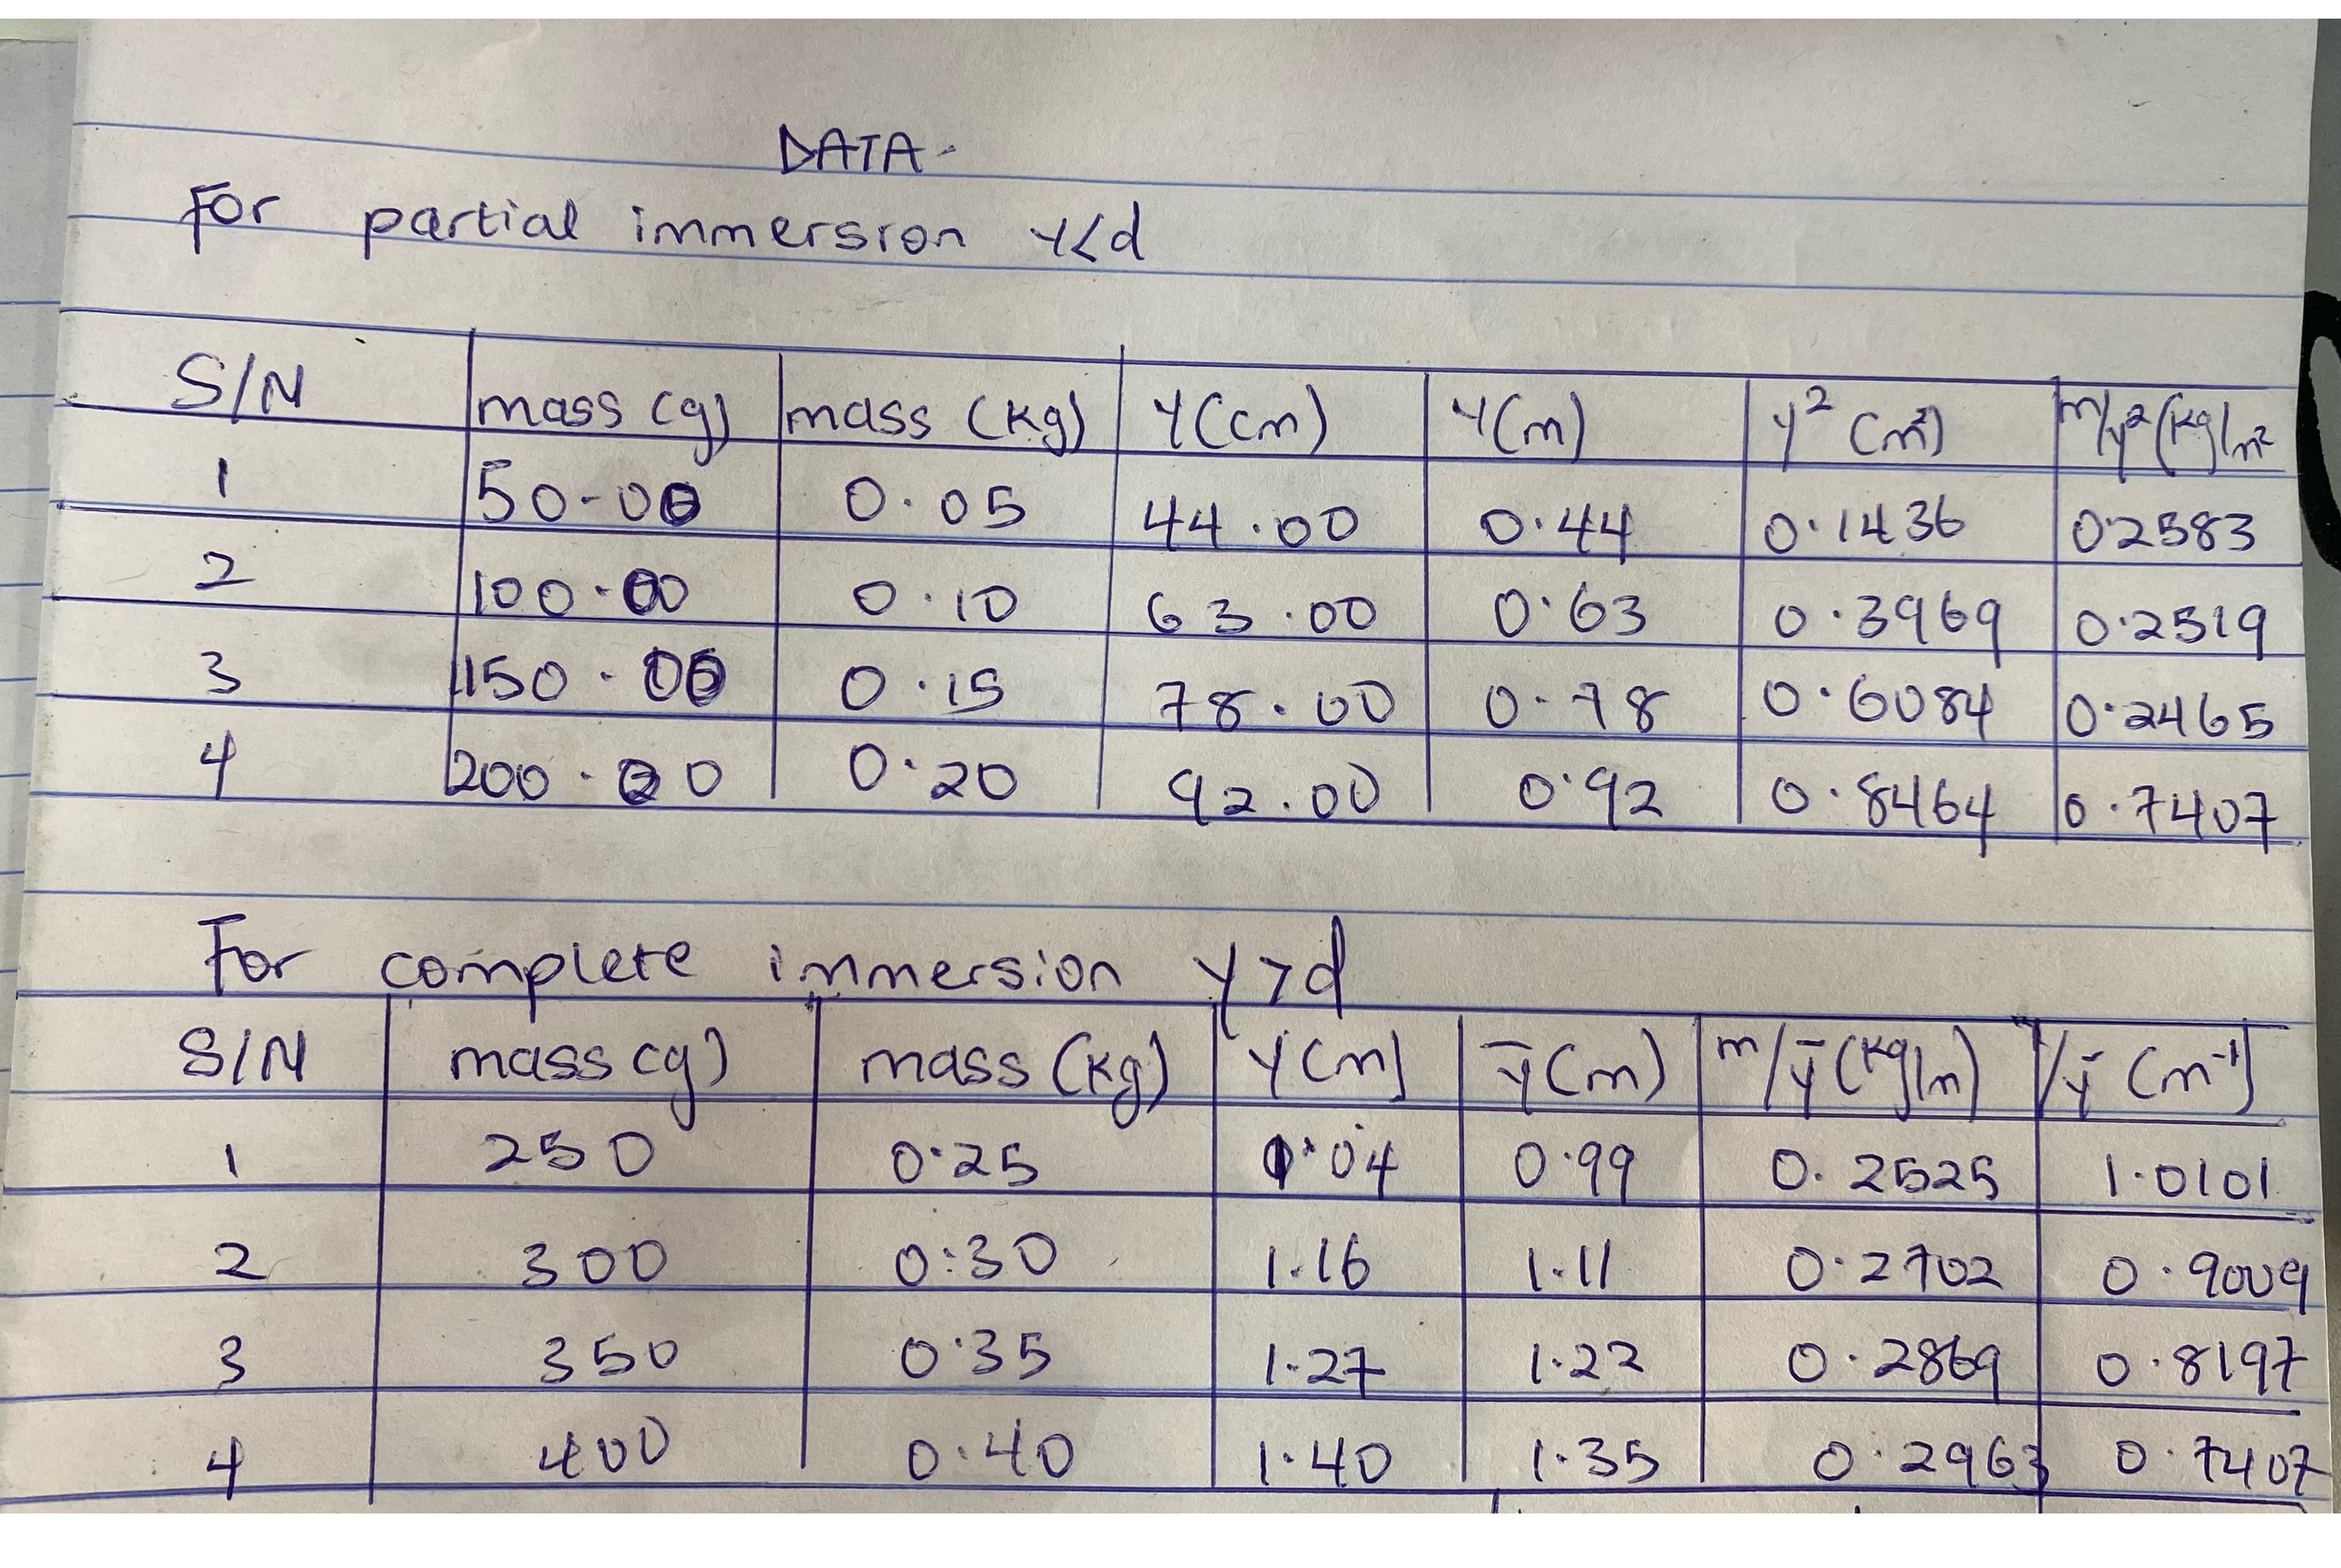 DATA-
For partial immersion y<d
S/N mass (g) mass (kg) Y(cm) Y(m) Y² (m²) m/y² (kg/m²
1 50.00 0.05 44.00 0.44 0.1436 0.2583
2 100.00 0.10 63.00 0.63 0.3969 0.2519
3 150.00 0.15 78.00 0.78 0.6084 0.2465
4 200.00 0.20 92.00 0.92 0.8464 0.7407
For complete immersion y>d
S/N mass (g) mass (kg) Y(m) ȳ(m) m/ȳ (kg/m) 1/ȳ (m⁻¹)
1 250 0.25 1.04 0.99 0.2525 1.0101
2 300 0.30 1.16 1.11 0.2702 0.9009
3 350 0.35 1.27 1.22 0.2869 0.8197
4 400 0.40 1.40 1.35 0.2963 0.7407